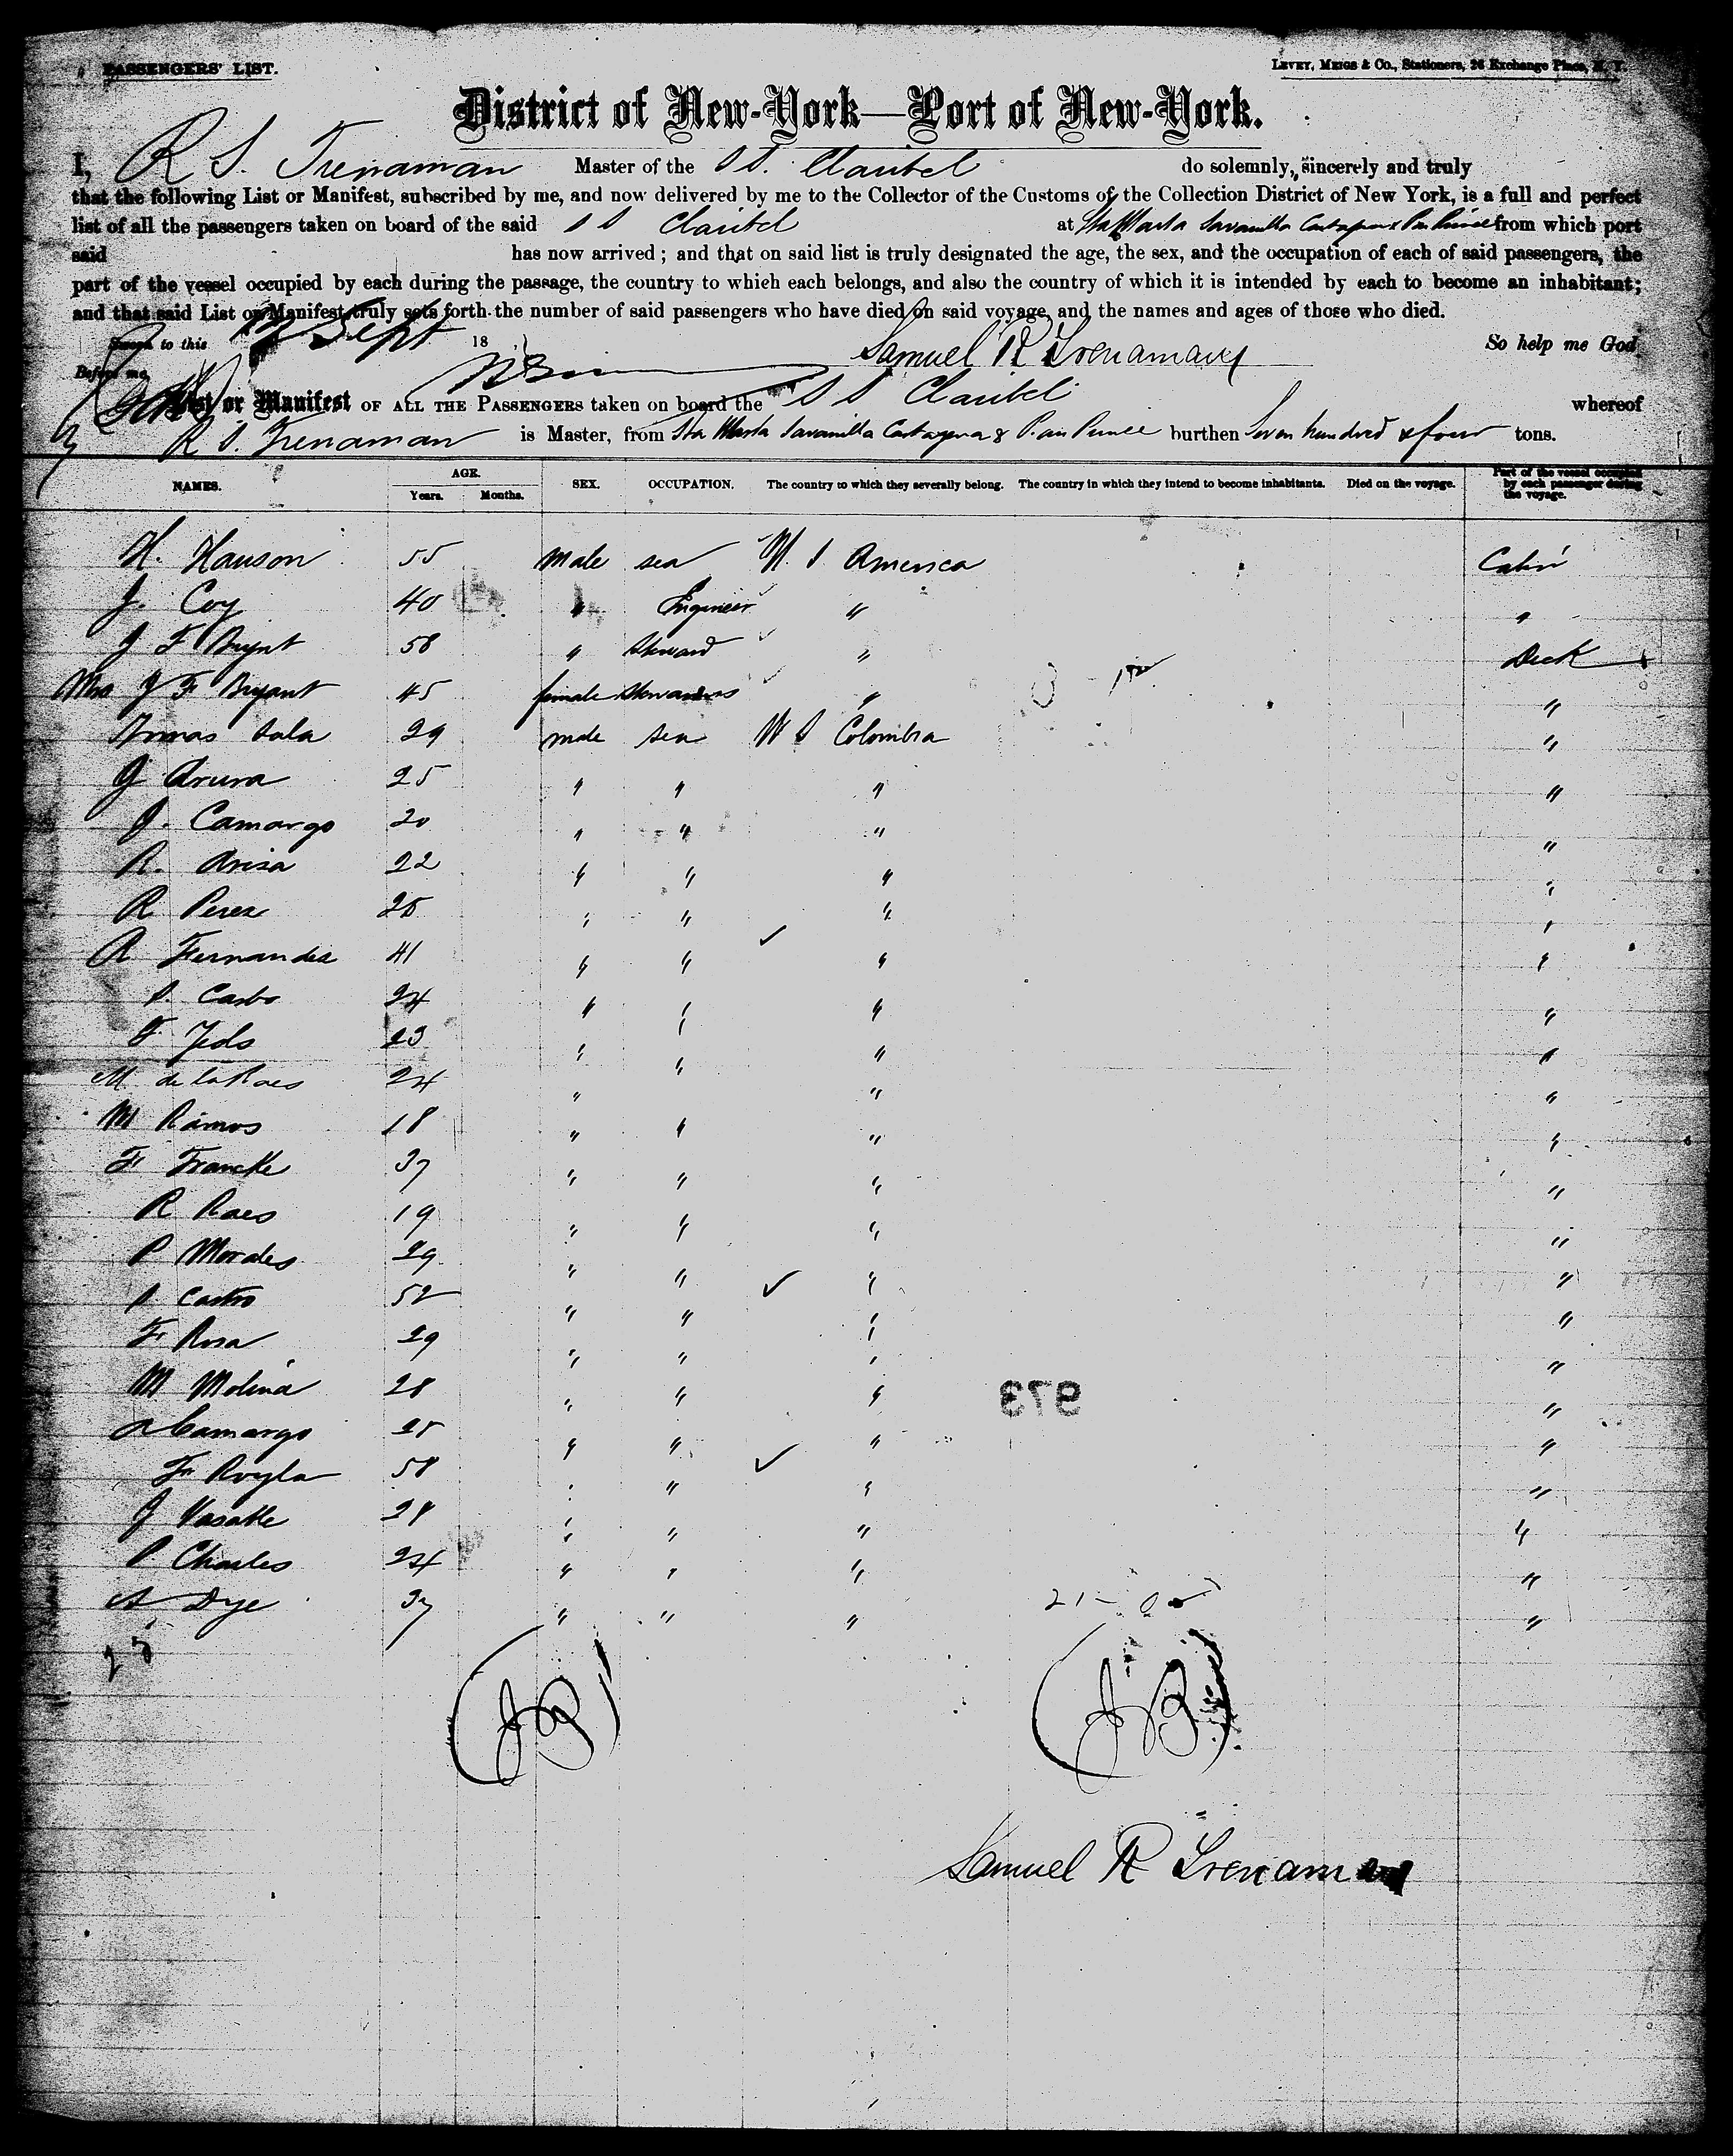 PASSENGERS' LIST.
LEVEY, MEIGS & Co., Stationers, 26 Exchange Place, N. Y.
District of New-York—Port of New-York.
I, R S. Trenaman Master of the S S. Claribel do solemnly, sincerely and truly
that the following List or Manifest, subscribed by me, and now delivered by me to the Collector of the Customs of the Collection District of New York, is a full and perfect
list of all the passengers taken on board of the said S S Claribel at Sta Marta Savanilla Cartagena & P. au Prince from which port
said has now arrived; and that on said list is truly designated the age, the sex, and the occupation of each of said passengers, the
part of the vessel occupied by each during the passage, the country to which each belongs, and also the country of which it is intended by each to become an inhabitant;
and that said List or Manifest truly sets forth the number of said passengers who have died on said voyage, and the names and ages of those who died.
Sworn to this Sept 18 Samuel R Trenaman So help me God
Before me,
List or Manifest OF ALL THE PASSENGERS taken on board the S S Claribel whereof
R S. Trenaman is Master, from Sta Marta Savanilla Cartagena & P. au Prince burthen Seven hundred & four tons.
NAMES. AGE. Years. Months. SEX. OCCUPATION. The country to which they severally belong. The country in which they intend to become inhabitants. Died on the voyage. Part of the vessel occupied by each passenger during the voyage.
H. Hanson 55 male sea U. S America Cabin
J. Coy 40 " Engineer " "
J F Brynt 58 " Steward " Deck
Mrs J F Bryant 45 female Stewardess " "
Tomas Sala 29 male sea U S Colombia "
J Arura 25 " " " "
J. Camargo 20 " " " "
R. Ariza 22 " " " "
R Perez 25 " " " "
A Fernandez 41 " " " "
P. Carbo 24 " " " "
F. Jeds 23 " " " "
M de la Raes 24 " " "
M Ramos 18 " " " "
F Francke 37 " " " "
R Raes 19 " " " "
P Morales 29 " " " "
P Castro 52 " " " "
F Rosa 29 " " " "
M Molina 28 " " " "
A Camargo 25 " " " "
F Royla 58 " " " "
J 28 " " " "
P Charles 24 " " " "
A Dye 37 " " " "
973
25
Samuel R Trenaman